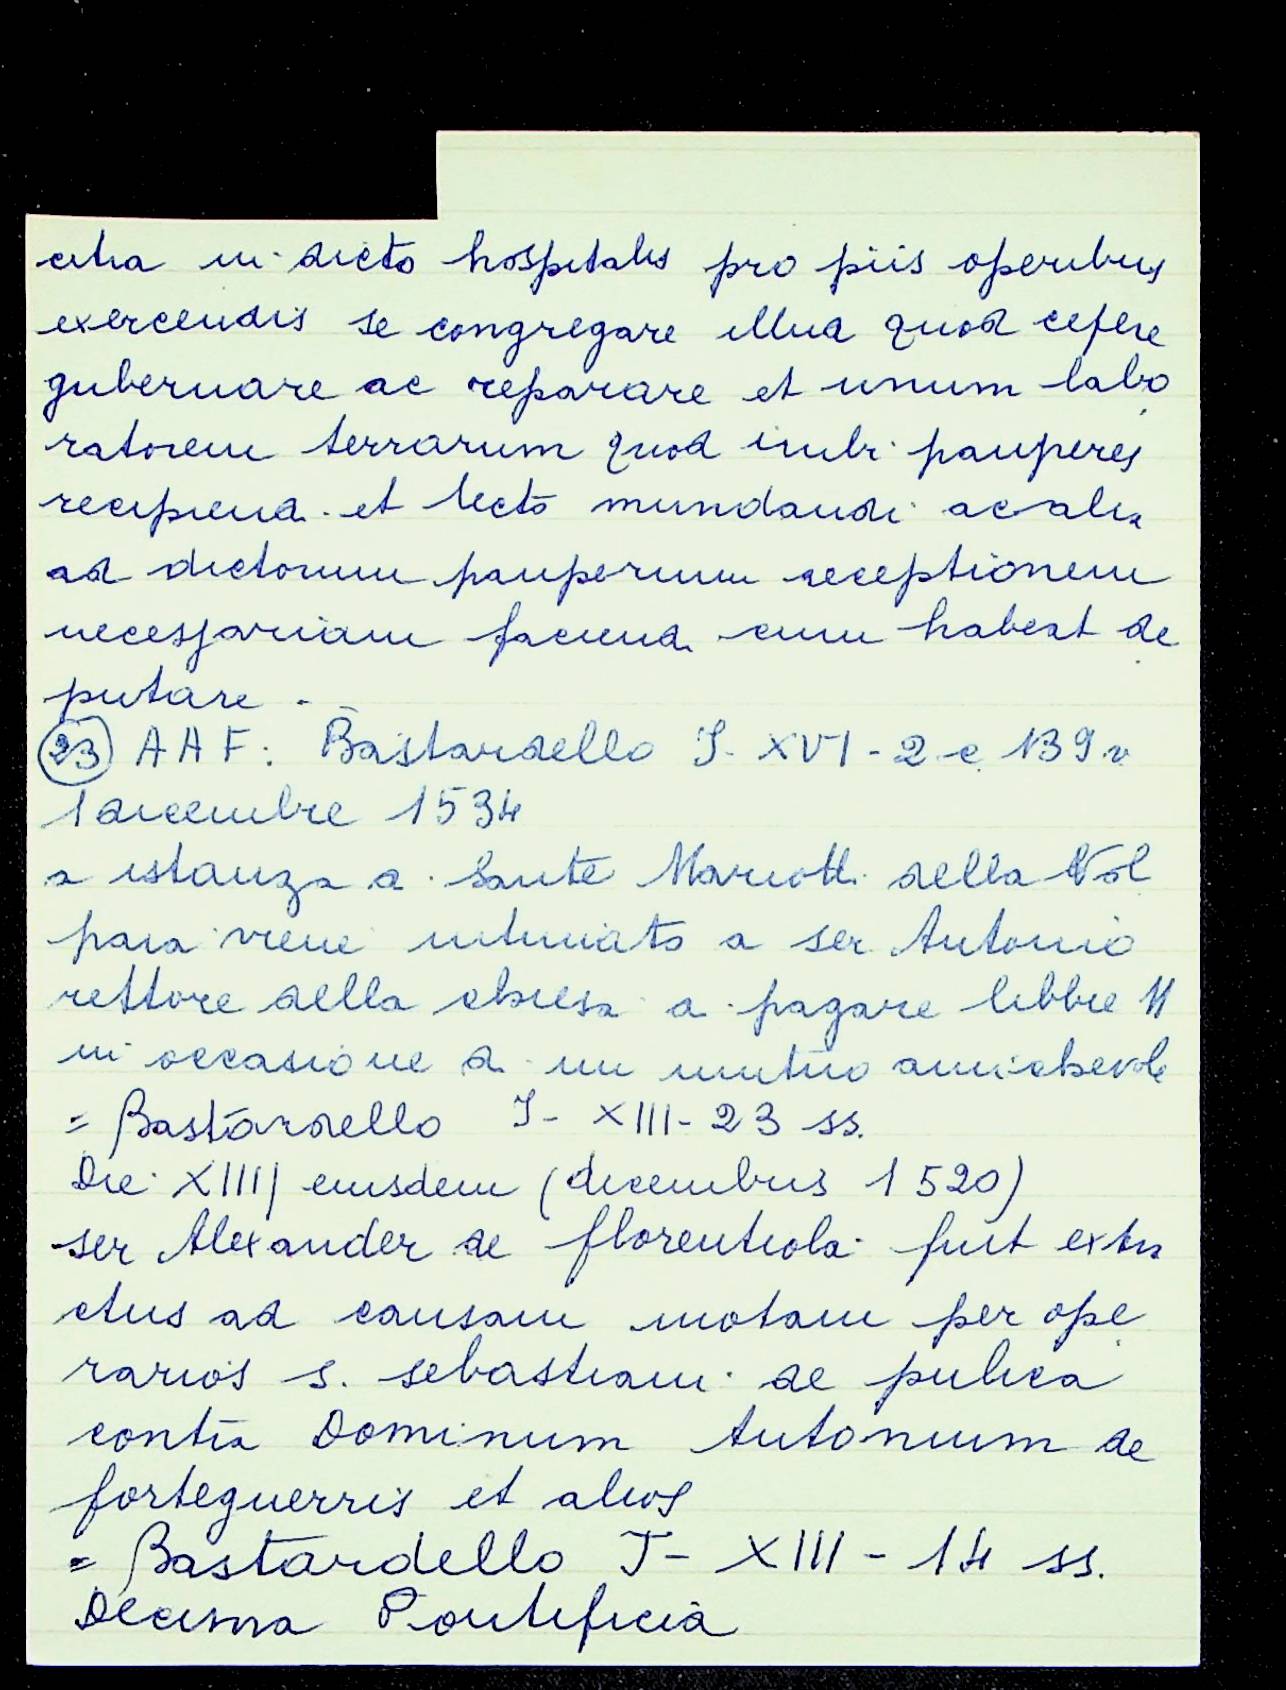 citra in dicto hospitalis pro piis operibus
exercendis se congregare illud quod cefere
gubernare ac reparare et unum labo
ratorem terrarum quod inibi pauperes
recipiend. et lecto mundandi ac alia
ad dictorum pauperum receptionem
necessariam faciend. cum habeat de
putare.
(23) AAF: Bastardello I-XVI-2 c 139 v
1 dicembre 1534
a istanza a Sante Mariotti della Val
paia viene intimato a ser Antonio
rettore della chiesa a pagare libbre 11
in occasione di un mutuo amichevole
= Bastardello I-XIII-23 ss.
Die XIIII eiusdem (decembris 1520)
ser Alexander de florentiola fuit extra
ctus ad causam motam per ope
rarios s. sebastiani de pulica
contra Dominum Antonium de
forteguerris et alios
= Bastardello I-XIII-14 ss.
Decima Pontificia